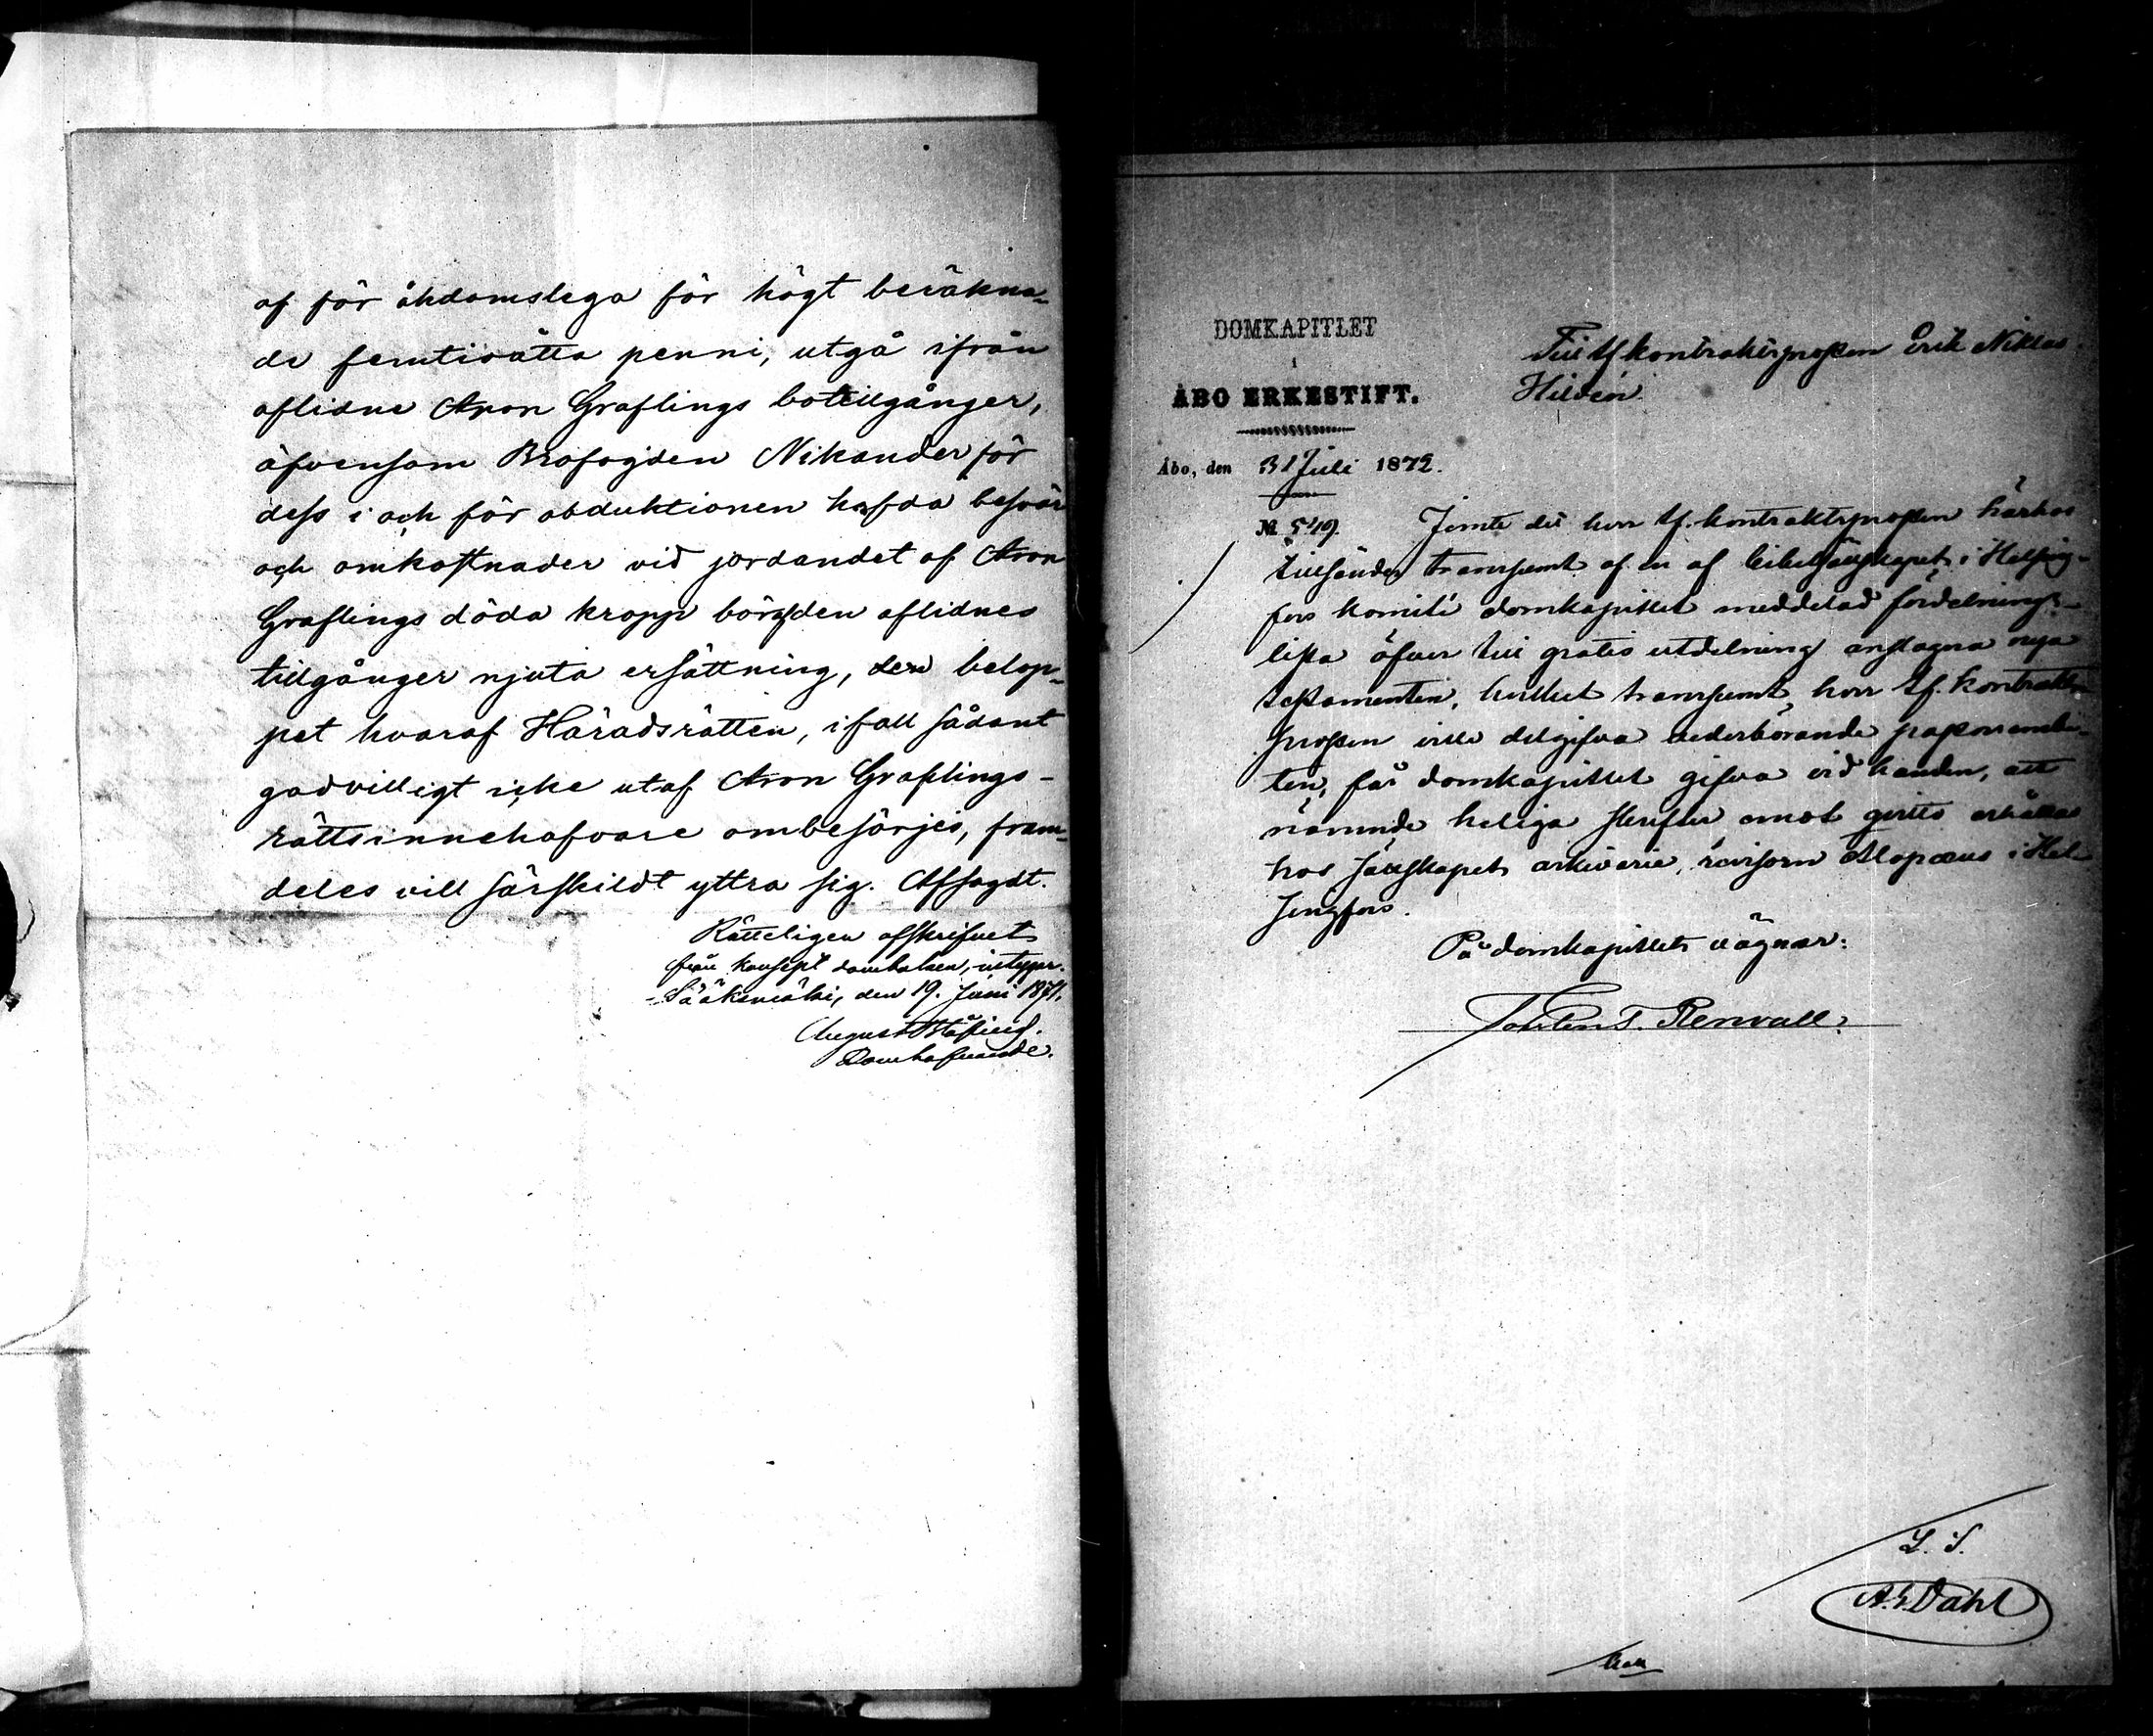 af för åkdomslega för högt beräkna-
de femtioåtta penni, utgå ifrån
aflidne Aron Graflings botillgånger,
äfvensom Brofogden Nikander för
dess i och för obduktionen hafda besvär
och omkostnader vid jordandet af Aron
Graflings döda kropp bör af den aflidnes
tillgånger njuta ersättning, den belop-
pet hvaraf Häradsrätten, ifall sådant
godvilligt icke utaf Aron Graflings-
rättsinnehafvare ombesörjes, fram-
deles vill särskildt yttra sig. Afsagdt.
Rätteligen afskrifvet
från konsept domboken, intygar.
Sääksmäki, den 19. Juni 1871.
August
Domhafvande.
DOMKAPITLET
i
ÅBO ERKESTIFT.
Till tf kontraktsprosten Erik Niklas
Hildén.
Åbo, den 31 Juli 1872.
№ 549. Jemte det herr tf. kontraktsprosten härhos
tillsändes transsumt af en af bibelsällskapets i Helsing-
fors komité domkapitlet meddelad fördelnings-
lista öfver till gratis utdelning anslagna nya
testamenten, hvilket transsumt herr tf. kontrakts-
prosten ville delgifva vederbörande pastorsembe-
ten, får domkapitlet gifva vid handen, att
nämnde heliga skrifter emot qvitto erhållas
hos sällskapets arkivarie, revisorn Alopæus i Hel-
singfors.
På domkapitlets vägnar:
Torsten T. Renvall.
L. S.
A. L. Dahl